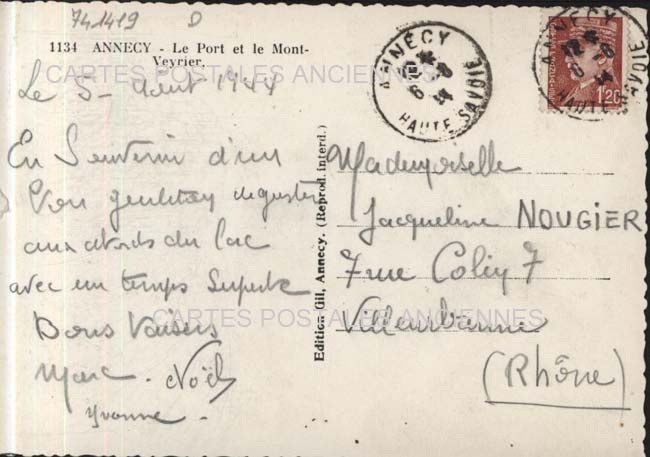 741419 D
1134 ANNECY - Le Port et le Mont-
Veyrier.
CARTES POSTALES ANCIENNES
Le 5 - Aout 1944
En Souvenir d'un
bon
aux abords du lac
avec un temps Superbe
Bons Baisers
Marc - Noël
Yvonne -
Edition Gil, Annecy. (Reprod. interd.)
ANNECY
HAUTE-SAVOIE
ANNECY
HAUTE SAVOIE
1,20
Mademoiselle
Jacqueline NOUGIER
7 rue Colin 7
Villeurbanne
(Rhône)
CARTES POSTALES ANCIENNES